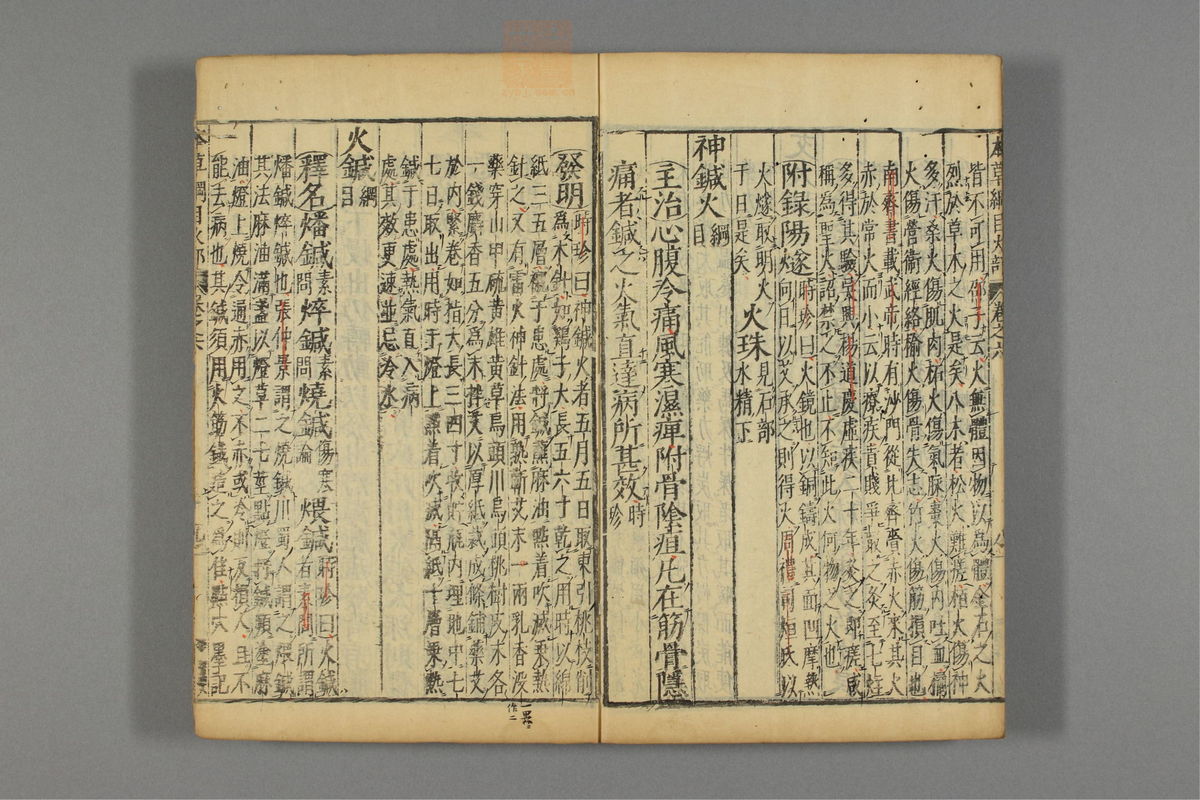 本草綱目火部 卷之六
皆不可用邵子云火無體因物以爲體金石之火
烈於草木之火是矣八木者松火難瘥栢火傷神
多汗桑火傷肌肉柘火傷氣脉棗火傷內吐血橘
火傷營衛經絡榆火傷骨失志竹火傷筋損目也
南齊書載武帝時有沙門從北齊赍赤火來其火
赤於常火而小云以療疾貴賤爭取之灸至七炷
多得其驗吳興楊道慶虛疾二十年灸即瘥咸
稱爲聖火詔禁之不止不知此火何物之火也
附錄陽燧時珍曰火鏡也以銅鑄成其面凹摩熱
向日以艾承之則得火周禮司烜氏以
火燧取明火
于日是矣 火珠見石部
水精下
神鍼火綱目
主治心腹冷痛風寒濕痺附骨陰疽凡在筋骨隱
痛者鍼之火氣直達病所甚效時珍
發明時珍曰神鍼火者五月五日取東引桃枝削
爲木針如鷄子大長五六寸乾之用時以綿
紙三五層襯于患處將鍼蘸麻油點着吹滅乘熱
針之又有雷火神針法用熟蘄艾末一兩乳香没
藥穿山甲硫黃雄黃草烏頭川烏頭桃樹皮末各
一錢麝香五分爲末拌艾以厚紙裁成條鋪藥艾
於內緊卷如指大長三四寸收貯瓶內埋地中七
七日取出用時于燈上點着吹滅隔紙十層乘熱
鍼于患處熱氣直入病
處其效更速並忌冷水
火鍼綱目
釋名燔鍼素問焠鍼素問燒鍼傷寒論煨鍼時珍曰火鍼
者素問所謂
燔鍼焠鍼也張仲景謂之燒鍼川蜀人謂之煨鍼
其法麻油滿盞以燈草二七莖點燈將鍼頻塗麻
油燈上燒令通赤用之不赤或冷則反損人且不
能去病也其鍼須用火筯鐵造之爲佳點穴墨記
本草綱目火部 卷之六
一署作二